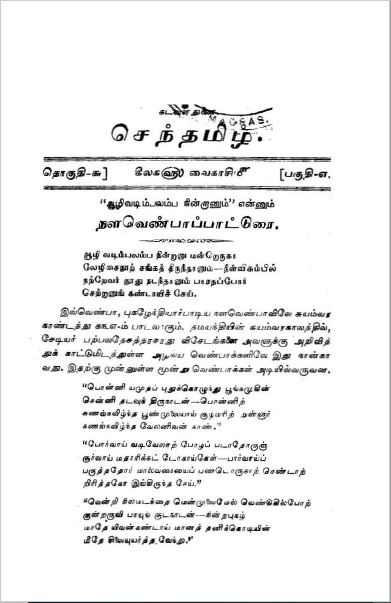 கடவுள் துணை
MADRAS.
செந்தமிழ்.
தொகுதி-௬] கீலகஹு வைகாசிமீ [பகுதி-எ.
“ஆழிவடிம்பலம்ப நின்றானும்” என்னும்
நளவெண்பாப்பாட்டுரை.
ஆழி வடிம்பலம்ப நின்றானு மன்றொருகா
லேழிசைநூற் சங்கத் திருந்தானும்—நீள்விசும்பில்
நற்றேவர் தூது நடந்தானும் பாரதப்போர்
செற்றானுங் கண்டாயிச் சேய்.
இவ்வெண்பா, புகழேந்தியார்பாடிய நளவெண்பாவிலே சுயம்வர
காண்டத்து ௧௩௭-ம் பாடலாகும். தமயந்தியின் சுயம்வரகாலத்தில்,
சேடியர் பற்பலதேசத்தரசரது விசேடங்களை அவளுக்கு அறிவித்
துக் காட்டுமிடத்துள்ள அழகிய வெண்பாக்களிலே இது நான்கா
வது. இதற்கு முன்னுள்ள மூன்று வெண்பாக்கள் அடியில்வருவன.
“பொன்னி யமுதப் புதுக்கொழுந்து பூங்கமுகின்
சென்னி தடவுந் திருநாடன்—பொன்னிற்
சுணங்கவிழ்ந்த பூண்முலையாய் சூழமரிற் றுன்னார்
கணங்கவிழ்ந்த வேலனிவன் காண்.”
“போர்வாய் வடிவேலாற் போழப் படாதோருஞ்
சூர்வாய் மதரரிக்கட் டோகாய்கேள்—பார்வாய்ப்
பருத்ததோர் மால்வரையைப் பண்டொருகாற் செண்டாற்
றிரித்தகோ இங்கிருந்த சேய்.”
“வென்றி நிலமடந்தை மென்முலைமேல் வெண்துகில்போற்
குன்றருவி பாயுங் குடநாடன்—நின்றபுகழ்
மாதே யிவன்கண்டாய் மானத் தனிக்கொடியின்
மீதே சிலையுயர்த்த வேந்து.”